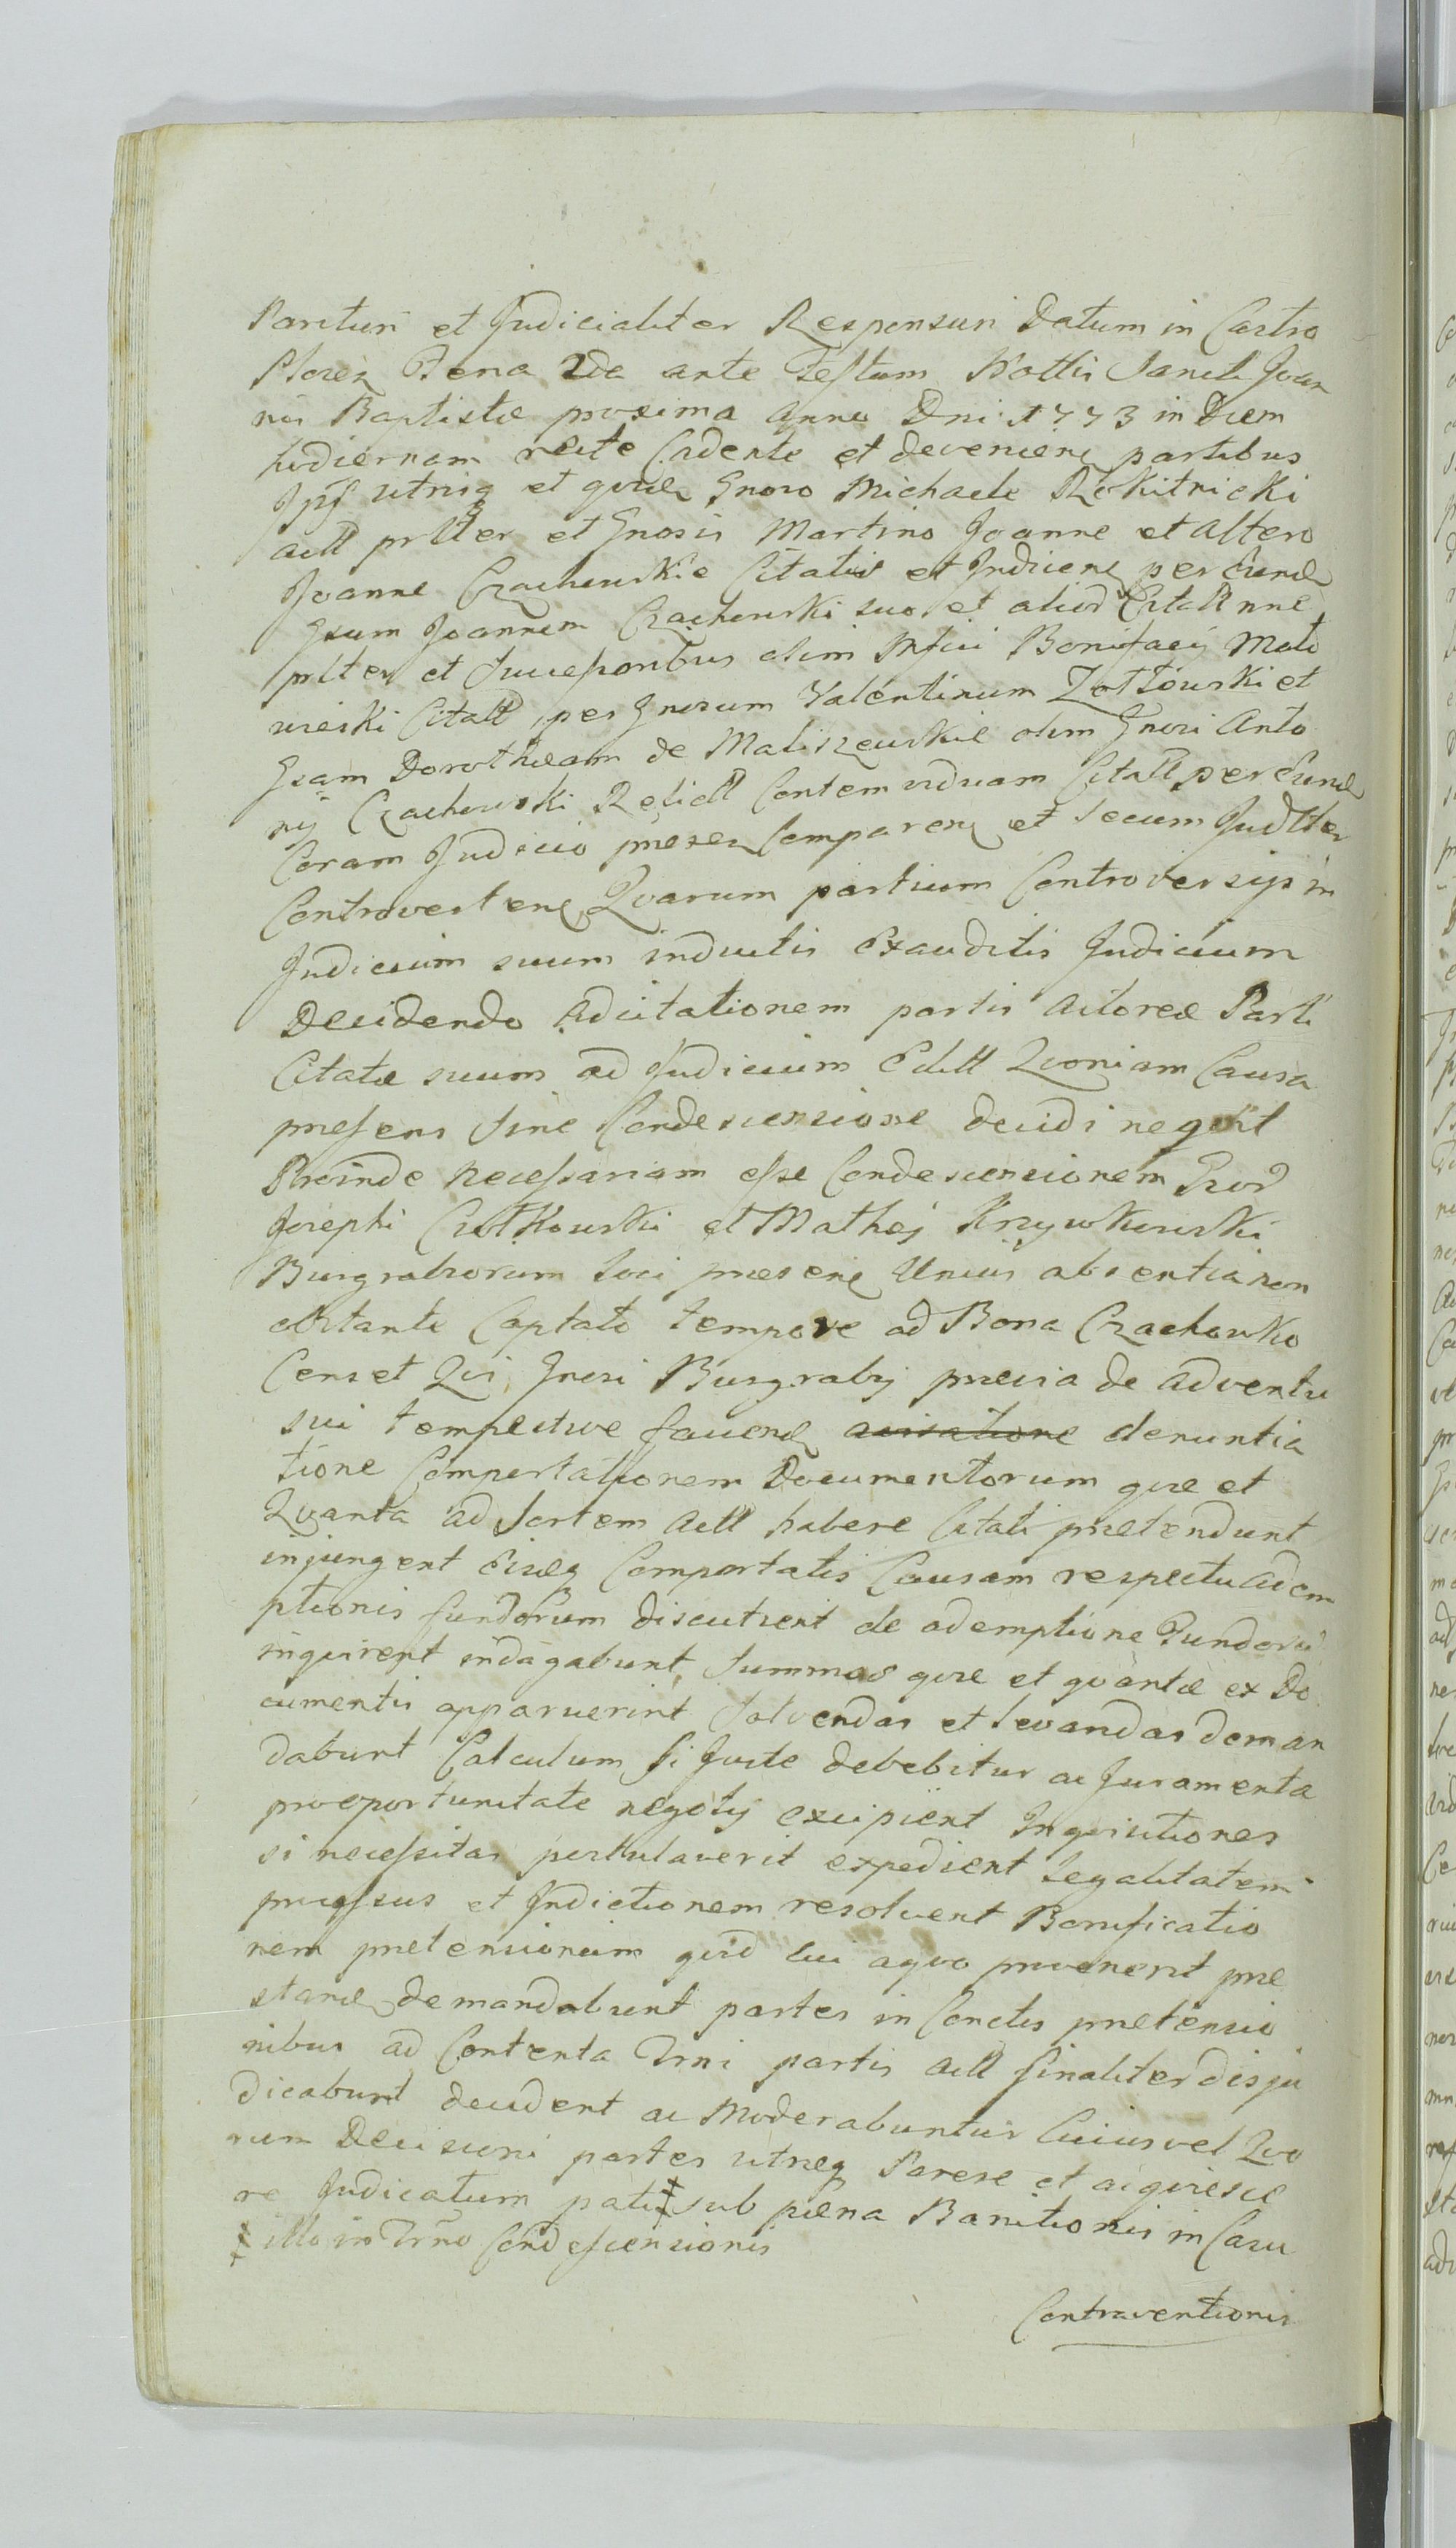 Parituri et Judicialiter Responsuri Datum in Castro
Plocen Feria 2da ante Festum Nattis Sancti Joan
nis Baptistæ proxima Anno Dni 1773 in Diem
hodiernam recte Cadente et devenien partibus
Ipsis utrisq et quidem Gnoso Michaele Rokitnicki
actt prltter et Gnosis Martino Joanne et altero
Joanne Czachowskie Citatis et Indicen per Eund
Gsum Joannem Czachowski suo et alior Citatt nne
prlter et Successoribus olim Mfici Bonifacij Mato
wieski Citatt per Gnosum Valentinum Zottowski et
Gsam Dorotheam de Maliszewskie olim Gnosi Anto
nij Czachowski Relictt Contem viduam Citatt per Eund
Coram Judicio præsen Comparen et secum Judtter
Controverten Quarum partium Controversijs in
Judicium suum inductis Exauditis Judicium
Decidendo Adcitationem partis Actoreæ Parti
Citatæ suum ad Judicium Edltt Quoniam Causa
præsens Sine Condescensione decidi nequit
Proinde Necessariam esse Condescensionem Gror
Josephi Ciotkowski et Mathej Krzywkowski
Burgrabiorum loci præsen Unius absentia non
obstante Captato tempore ad Bona Czachowko
Censet Qui Gnosi Burgrabij prævia de adventu
sui tempestive faciend avisatione denuntia
tione Comportationem Documentorum quæ et
Quanta ad Sortem Actt habere Citati prætendunt
injungent Eisq Comportatis Causam respectu adem
ptionis fundorum discutient de ademptione Fundorum
inquirent indagabunt, Summas quæ et quantæ ex Do
cumentis apparuerint Solvendas et levandas deman
dabunt Calculum Si Juste debebitur ac Juramenta
pro oportunitate negotij excipient Inquisitiones
si necessitas postulaverit expedient legalitatem
processus et Indictionem resolvent Bonificatio
nem prætensionum quid cui a quo provenerit præ
stand demandabunt partes in Cunctis prætensio
nibus ad Contenta Trni partis Actt finaliter disju
dicabunt decident ac Moderabuntur Cuiusvel Quo
rum Decisioni partes utræq Parere et acquiesce
re Judicatum pati ‡ sub pæna Banitionis in Casu
‡ illo in Trno Condescensionis
Contraventionis